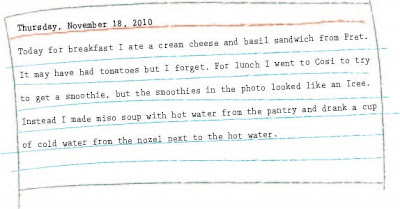 Thursday, November 18, 2010
Today for breakfast I ate a cream cheese and basil sandwich from Pret.
It may have had tomatoes but I forget. For lunch I went to Cosi to try
to get a smoothie, but the smoothies in the photo looked like an Icee.
Instead I made miso soup with hot water from the pantry and drank a cup
of cold water from the nozel next to the hot water.